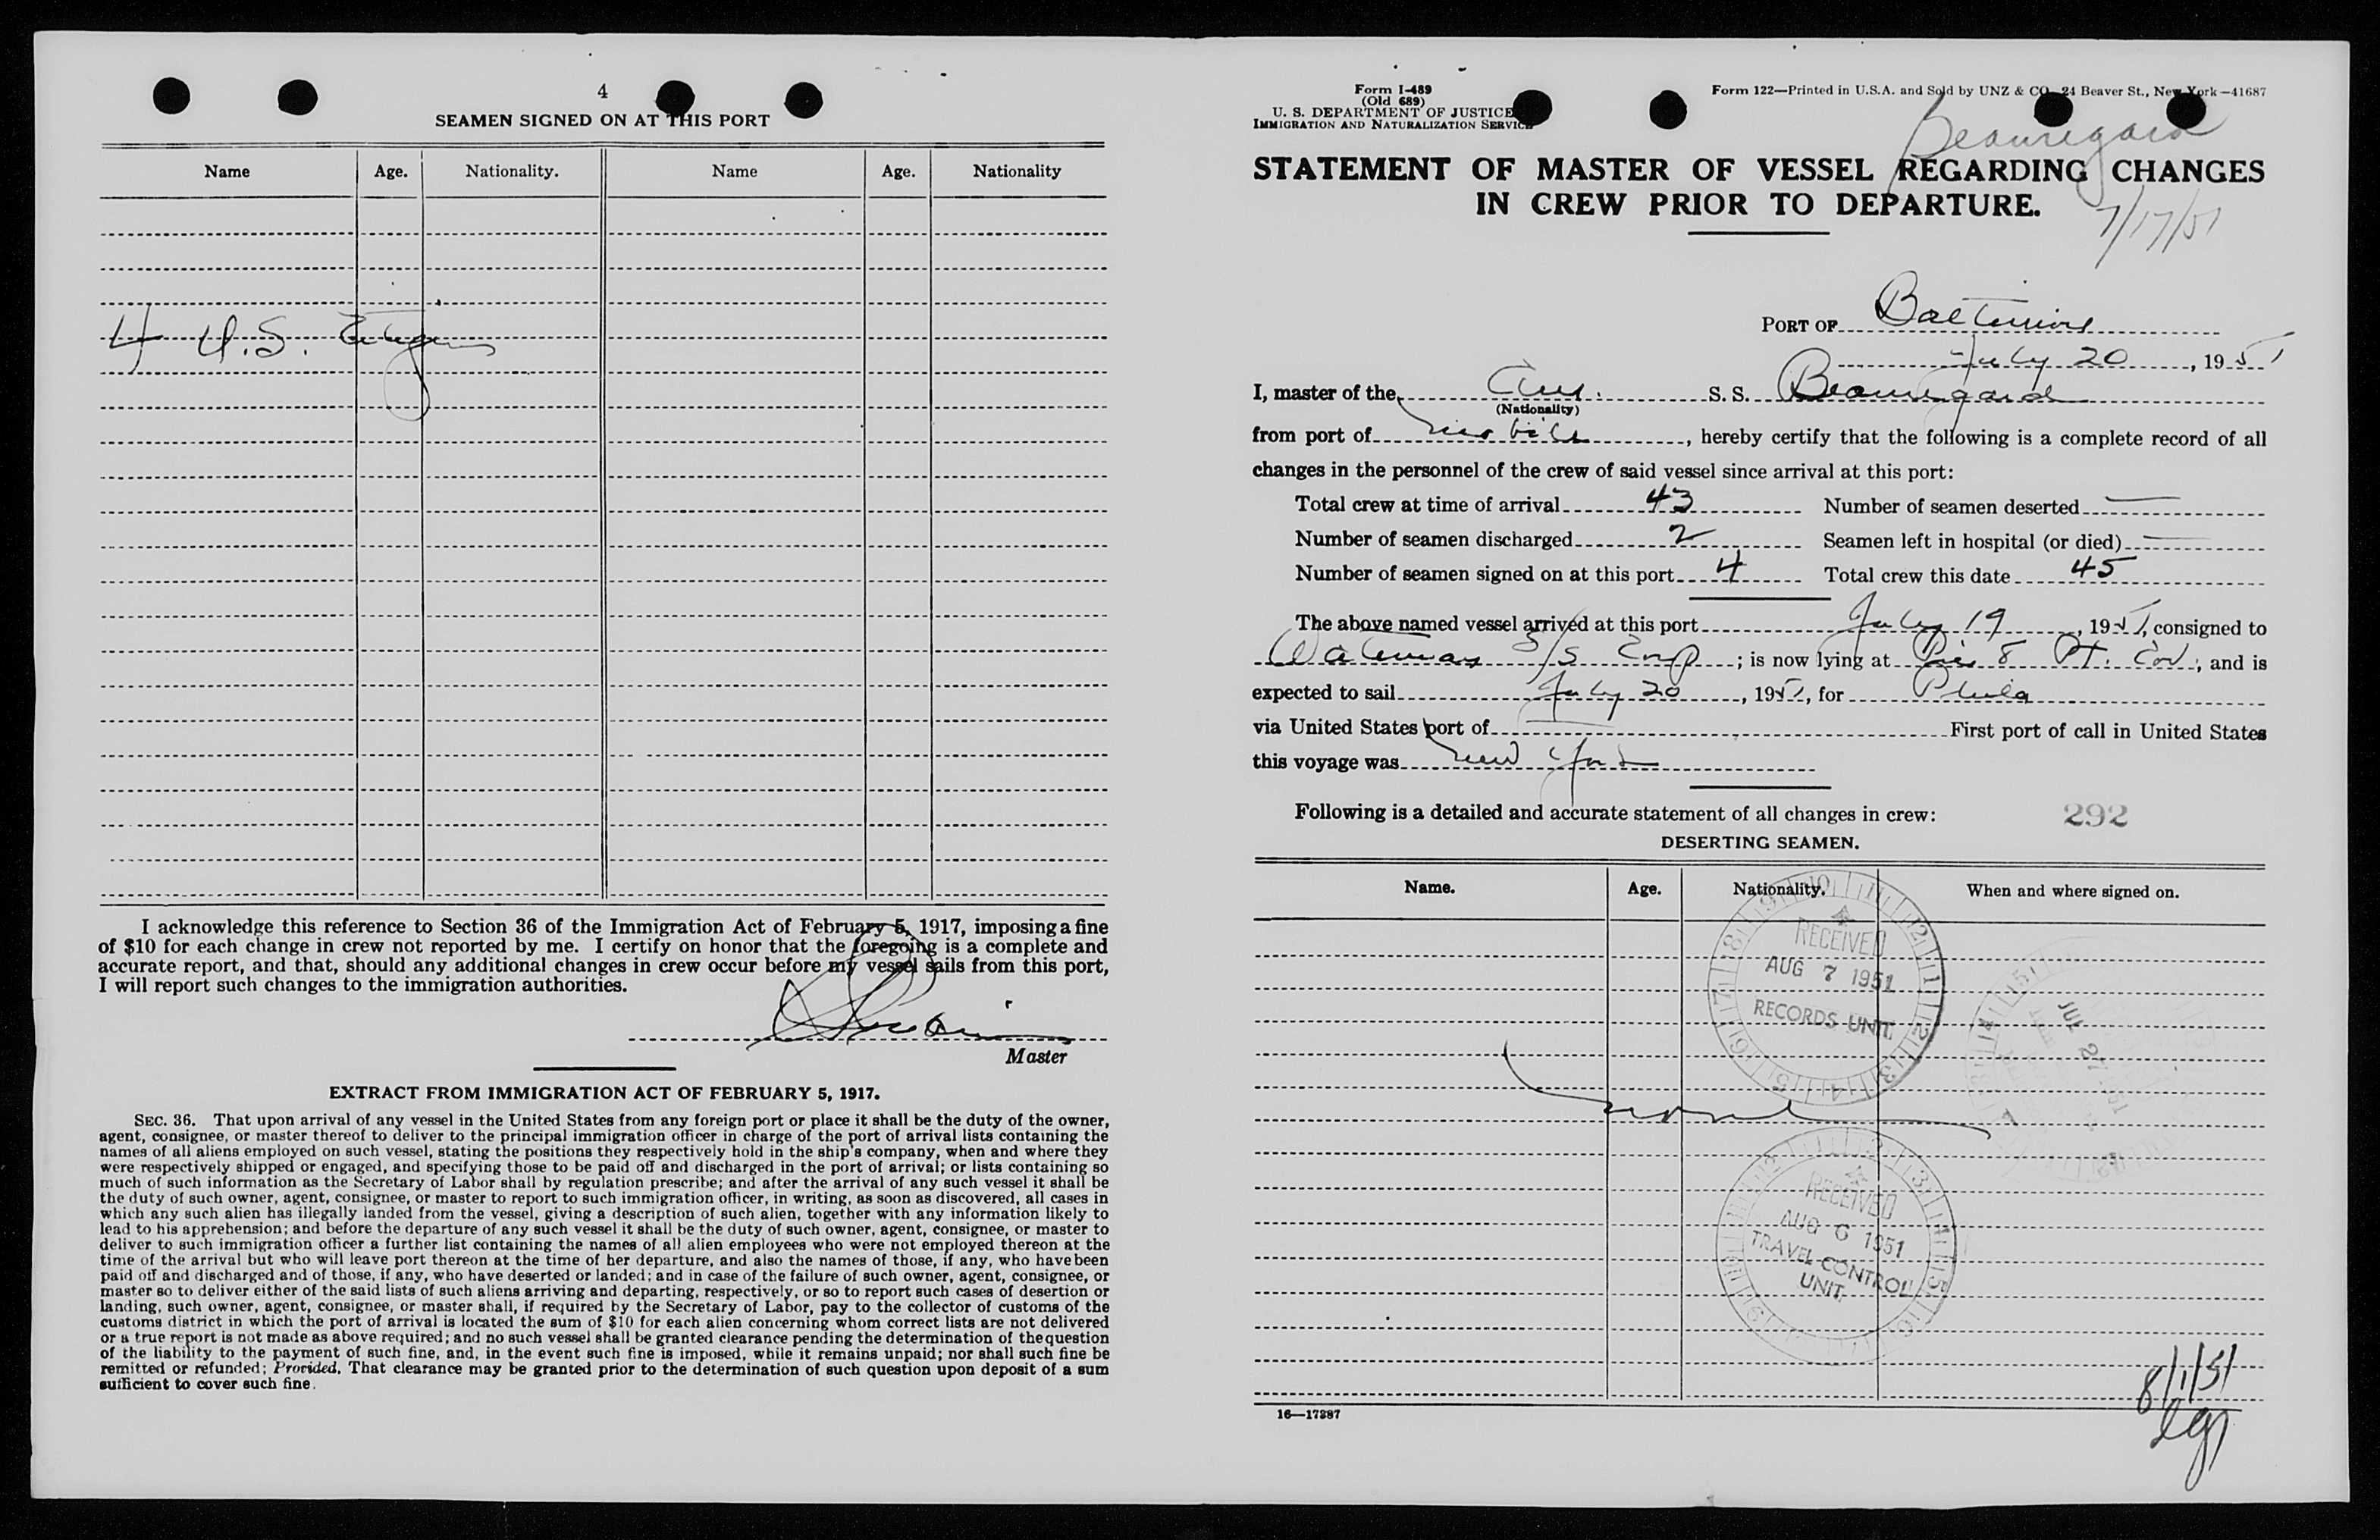 4
SEAMEN SIGNED ON AT THIS PORT
Name Age. Nationality. Name Age. Nationality
4 U.S. Citizens
I acknowledge this reference to Section 36 of the Immigration Act of February 5, 1917, imposing a fine
of $10 for each change in crew not reported by me. I certify on honor that the foregoing is a complete and
accurate report, and that, should any additional changes in crew occur before my vessel sails from this port,
I will report such changes to the immigration authorities.
Master
EXTRACT FROM IMMIGRATION ACT OF FEBRUARY 5, 1917.
SEC. 36. That upon arrival of any vessel in the United States from any foreign port or place it shall be the duty of the owner,
agent, consignee, or master thereof to deliver to the principal immigration officer in charge of the port of arrival lists containing the
names of all aliens employed on such vessel, stating the positions they respectively hold in the ship's company, when and where they
were respectively shipped or engaged, and specifying those to be paid off and discharged in the port of arrival; or lists containing so
much of such information as the Secretary of Labor shall by regulation prescribe; and after the arrival of any such vessel it shall be
the duty of such owner, agent, consignee, or master to report to such immigration officer, in writing, as soon as discovered, all cases in
which any such alien has illegally landed from the vessel, giving a description of such alien, together with any information likely to
lead to his apprehension; and before the departure of any such vessel it shall be the duty of such owner, agent, consignee, or master to
deliver to such immigration officer a further list containing the names of all alien employees who were not employed thereon at the
time of the arrival but who will leave port thereon at the time of her departure, and also the names of those, if any, who have been
paid off and discharged and of those, if any, who have deserted or landed; and in case of the failure of such owner, agent, consignee, or
master so to deliver either of the said lists of such aliens arriving and departing, respectively, or so to report such cases of desertion or
landing, such owner, agent, consignee, or master shall, if required by the Secretary of Labor, pay to the collector of customs of the
customs district in which the port of arrival is located the sum of $10 for each alien concerning whom correct lists are not delivered
or a true report is not made as above required; and no such vessel shall be granted clearance pending the determination of the question
of the liability to the payment of such fine, and, in the event such fine is imposed, while it remains unpaid; nor shall such fine be
remitted or refunded; Provided, That clearance may be granted prior to the determination of such question upon deposit of a sum
sufficient to cover such fine.
Form I-489
(Old 689)
U. S. DEPARTMENT OF JUSTICE
IMMIGRATION AND NATURALIZATION SERVICE
Form 122—Printed in U.S.A. and Sold by UNZ & CO. 24 Beaver St., New York—41687
Beauregard
STATEMENT OF MASTER OF VESSEL REGARDING CHANGES
IN CREW PRIOR TO DEPARTURE.
7/17/51
PORT OF Baltimore
July 20, 1951
I, master of the Am. S. S. Beauregard
(Nationality)
from port of Mobile, hereby certify that the following is a complete record of all
changes in the personnel of the crew of said vessel since arrival at this port:
Total crew at time of arrival 43 Number of seamen deserted —
Number of seamen discharged 2 Seamen left in hospital (or died) —
Number of seamen signed on at this port 4 Total crew this date 45
The above named vessel arrived at this port July 19, 1951, consigned to
Waterman S/S Corp; is now lying at Pier 8 Pt. Cov; and is
expected to sail July 20, 1951, for Phila
via United States port of — First port of call in United States
this voyage was New York
Following is a detailed and accurate statement of all changes in crew:
292
DESERTING SEAMEN.
Name. Age. Nationality. When and where signed on.
RECEIVED
AUG 7 1951
RECORDS UNIT.
JUL 27 51
None
RECEIVED
AUG 6 1951
TRAVEL CONTROL
UNIT.
8/1/51
16—17387